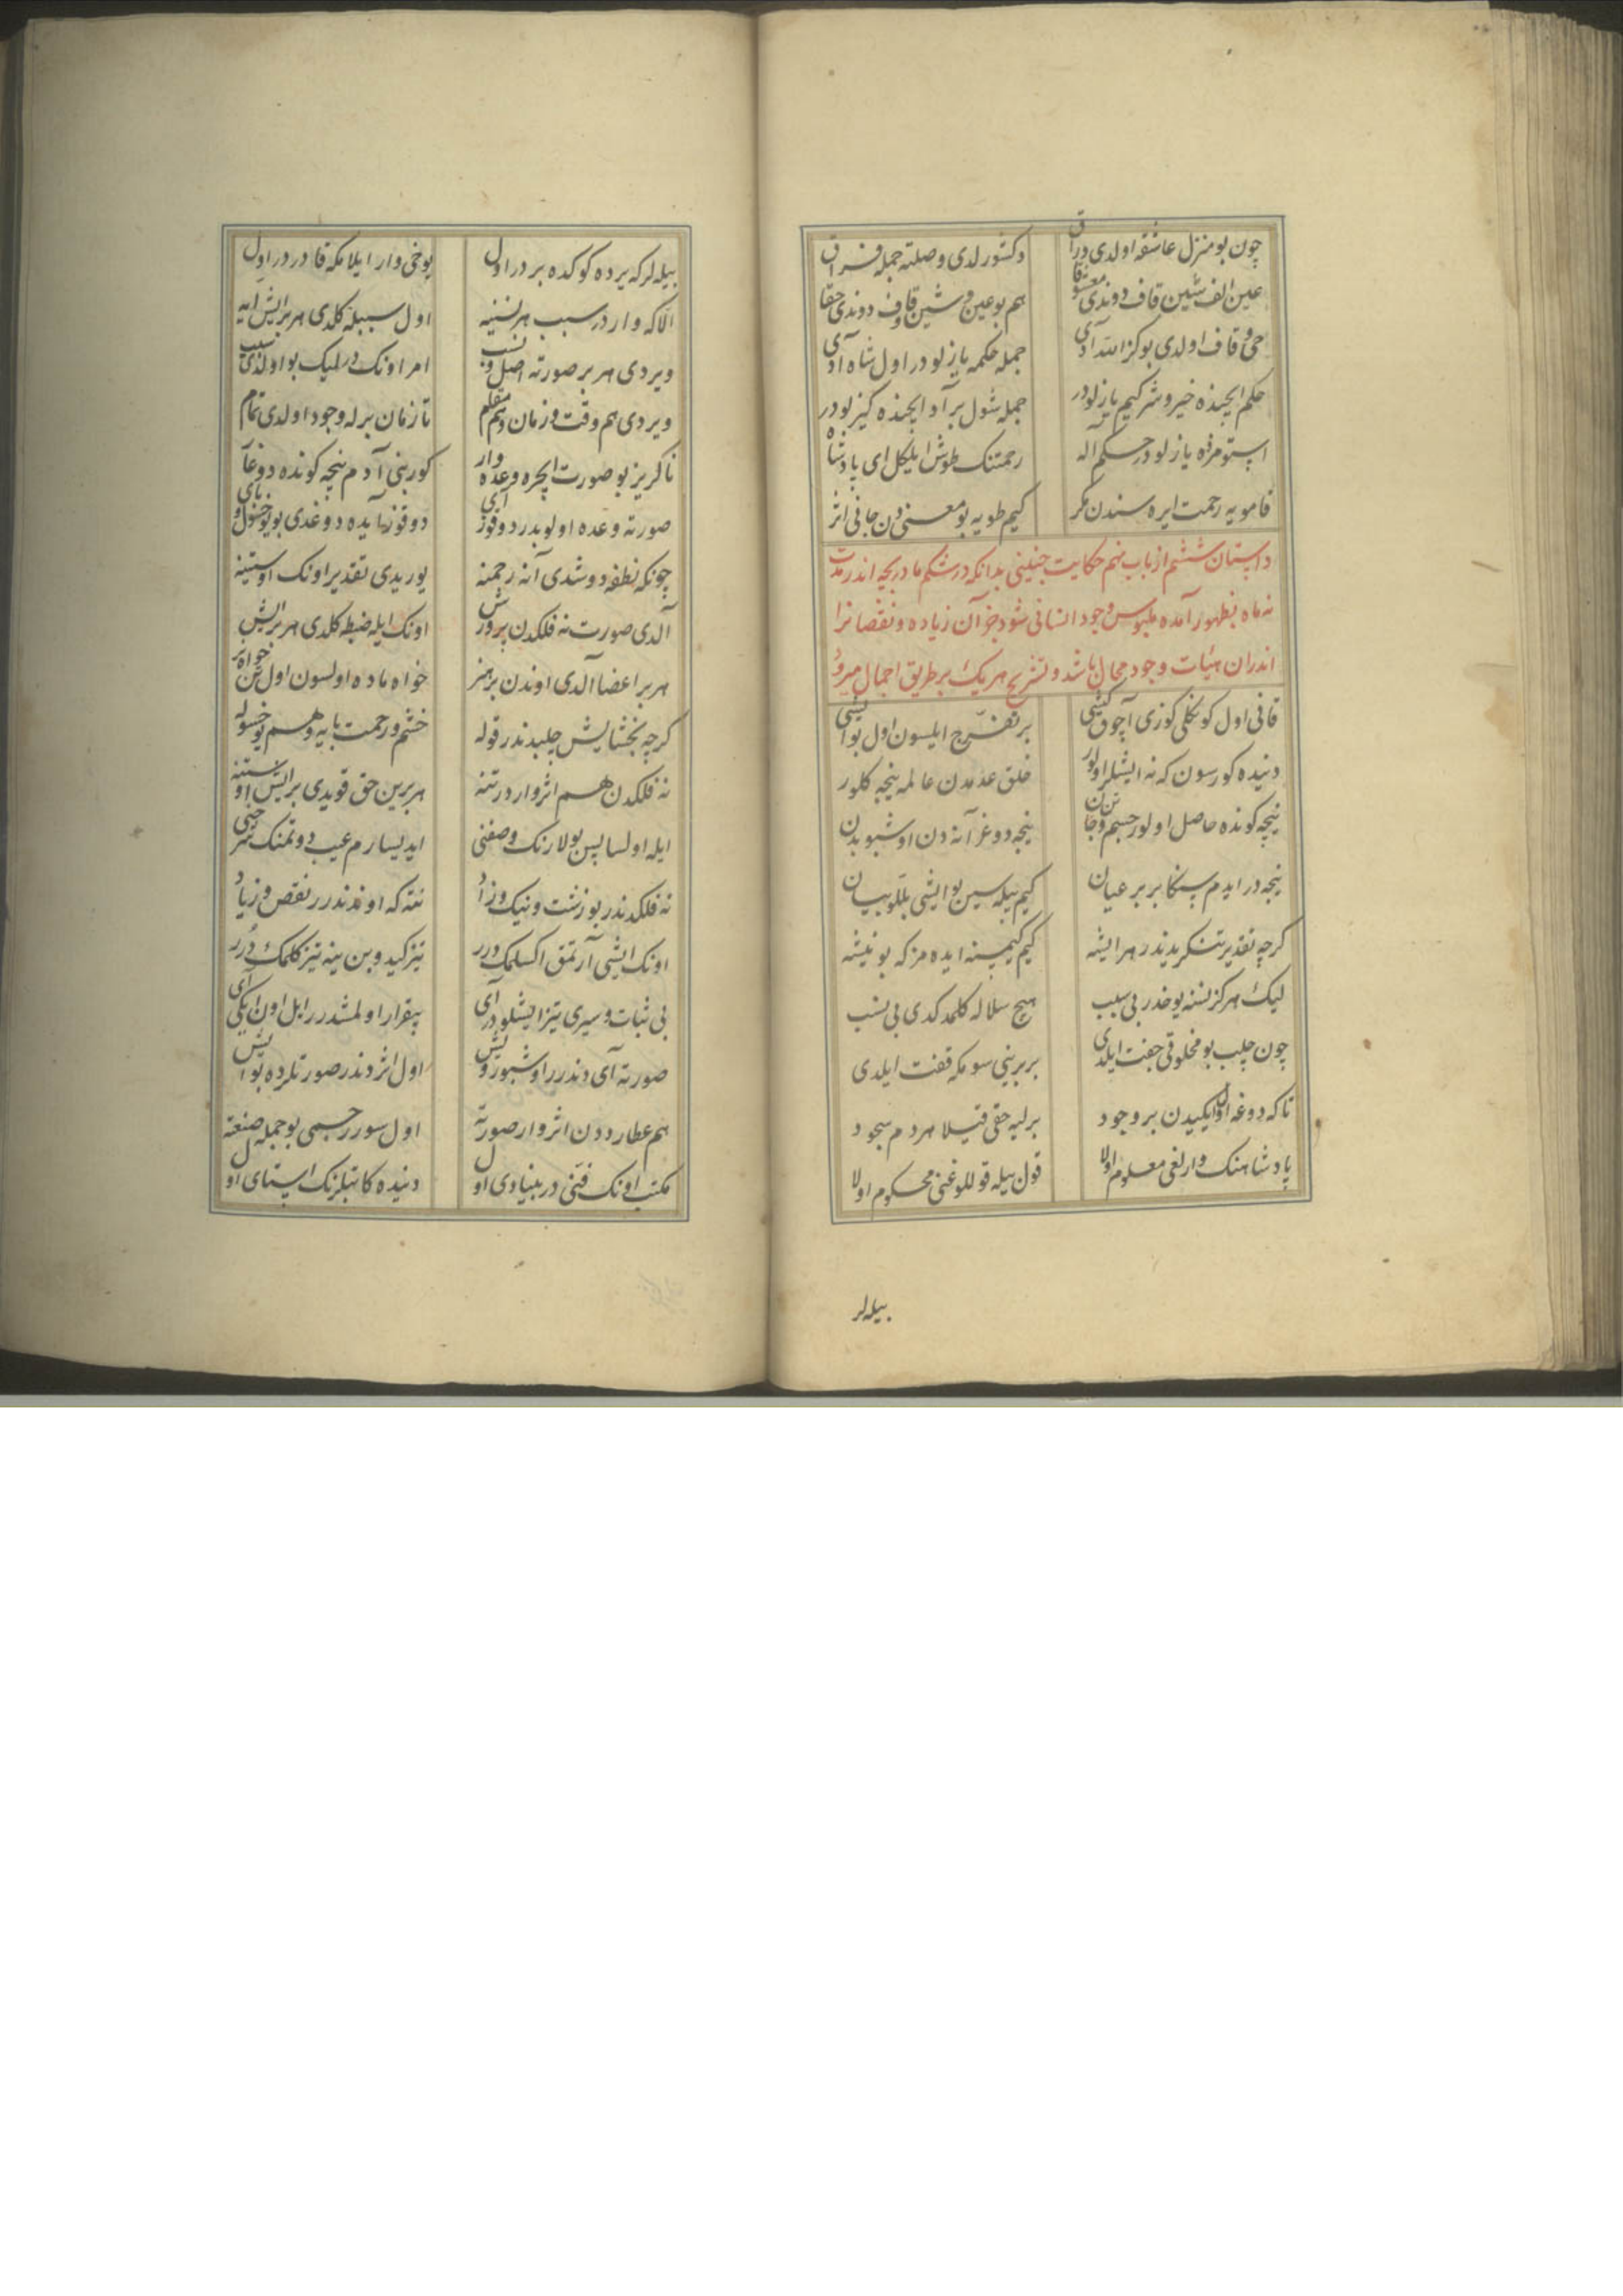 چون بو منزل عاشقه اولدی دراق دکشورلدی وصلته جمله فراق
عین الف شین قاف دوندی معشوقا هم بو عین و شین و قاف دوندی حقا
حی و قاف اولدی بو کز الله آدی جمله حکمه یازلودر اول شاه آدی
حکم ایچنده خیر و شر کیم یازلودر جمله شول بر آد ایچنده کیزلودر
اوستومزه یازلودر حکم آله رحمتنک طوش ایلکل ای پادشاه
قامویه رحمت ایره سندن مکر کیم طویه بو معنیدن جانی اثر
داستان ششم از باب نهم حکایت جنینی بدانکه در شکم مادر بچه اندر مدت
نه ماه بظهور آمده ملبوس وجود انسانی شود جز آن زیاده و نقصانرا
اندران هیئات وجود محال باشد و تشریح هر یک بر طریق اجمال میرود
قانی اول کوکلی کوزی آچوق کیشی بر تفرّج ایلسون اول بو ایشی
دنیده کورسون که نه ایشلر اولور خلق عدمدن عالمه نیجه کلور
نیجه کونده حاصل اولور جسم و جان نیجه دوغر آنه دن اوشبو بدن
نیجه در ایدم سنکا بر بر عیان کیم بیله سین بو ایشی بللو بیان
کرچه تقدیر تنکریدندر هر ایشه کیم کیمسنه ایده مز که بو نیشه
لیک هرکز نسنه یوخدر بی سبب هیچ سلاله کلمدکدی بی نسب
چون چلب بو مخلوقی جفت ایلدی بر برینی سومکه قفت ایلدی
تا که دوغه اول ایکیدن بر وجود برلیه حقی قیلا هر دم سجود
پادشاهنک وارلغی معلوم اولا قول بیله قوللوغنی محکوم اولا
بیله لر
بیله لر که یرده کوکده بردر اول یوخی وار ایلامکه قادردر اول
الّا که واردر سبب هر نسنیه اول سببله کلدی هر بر ایش ایه
ویردی هر بر صورته اصل و نسب امر اونک در لیک بو اولدی سبب
ویردی هم وقت و زمان و هم مقام تا زمان برله وجود اولدی تمام
ناکریز بو صورت ایچره وعده وار کور بنی آدم نیجه کونده دوغار
صورته وعده اولوبدر دوقوز آی دوقوز آیده دوغدی بو یوخسول و بای
چونکه نطفه دوشدی آنه رحمنه یوریدی تقدیر اونک اوستینه
آلدی صورت نه فلکدن پرورش اونک ایله ضبطه کلدی هر بر ایش
هر بر اعضا آلدی اوندن بر هنر خواه ماده اولسون اول تن خواه نر
کرچه بخشایش چلبدندر قوله خشم و رحمت بایه و هم یوخسوله
نه فلکدن هم اثر واردر تنه هر برین حق قویدی بر ایش اوستنه
ایله اولسا پس بولارنک وصفنی ایدیسارم عیب دوتمنک
نه فلکدندر بو زشت و نیک و زاد نته که اوندندر نقص و زیاد
اونک ایشی آرتمق اکسلمک درر تیز کیدوبن ینه تیز کلمک درر
بی ثبات و سیری تیز ایشلودر آی بیقرار اولمشدرر ایل اون ایکی آی
صورته آی دندرر اوشبو روش اول اثردندر صورتلرده بو ایش
هم عطارددن اثر وار صورته اول سورر جسمی بو جمله صنعته
مکتب اونک فنّی در بنیادی اول دنیده کاتبلرنک استای اول